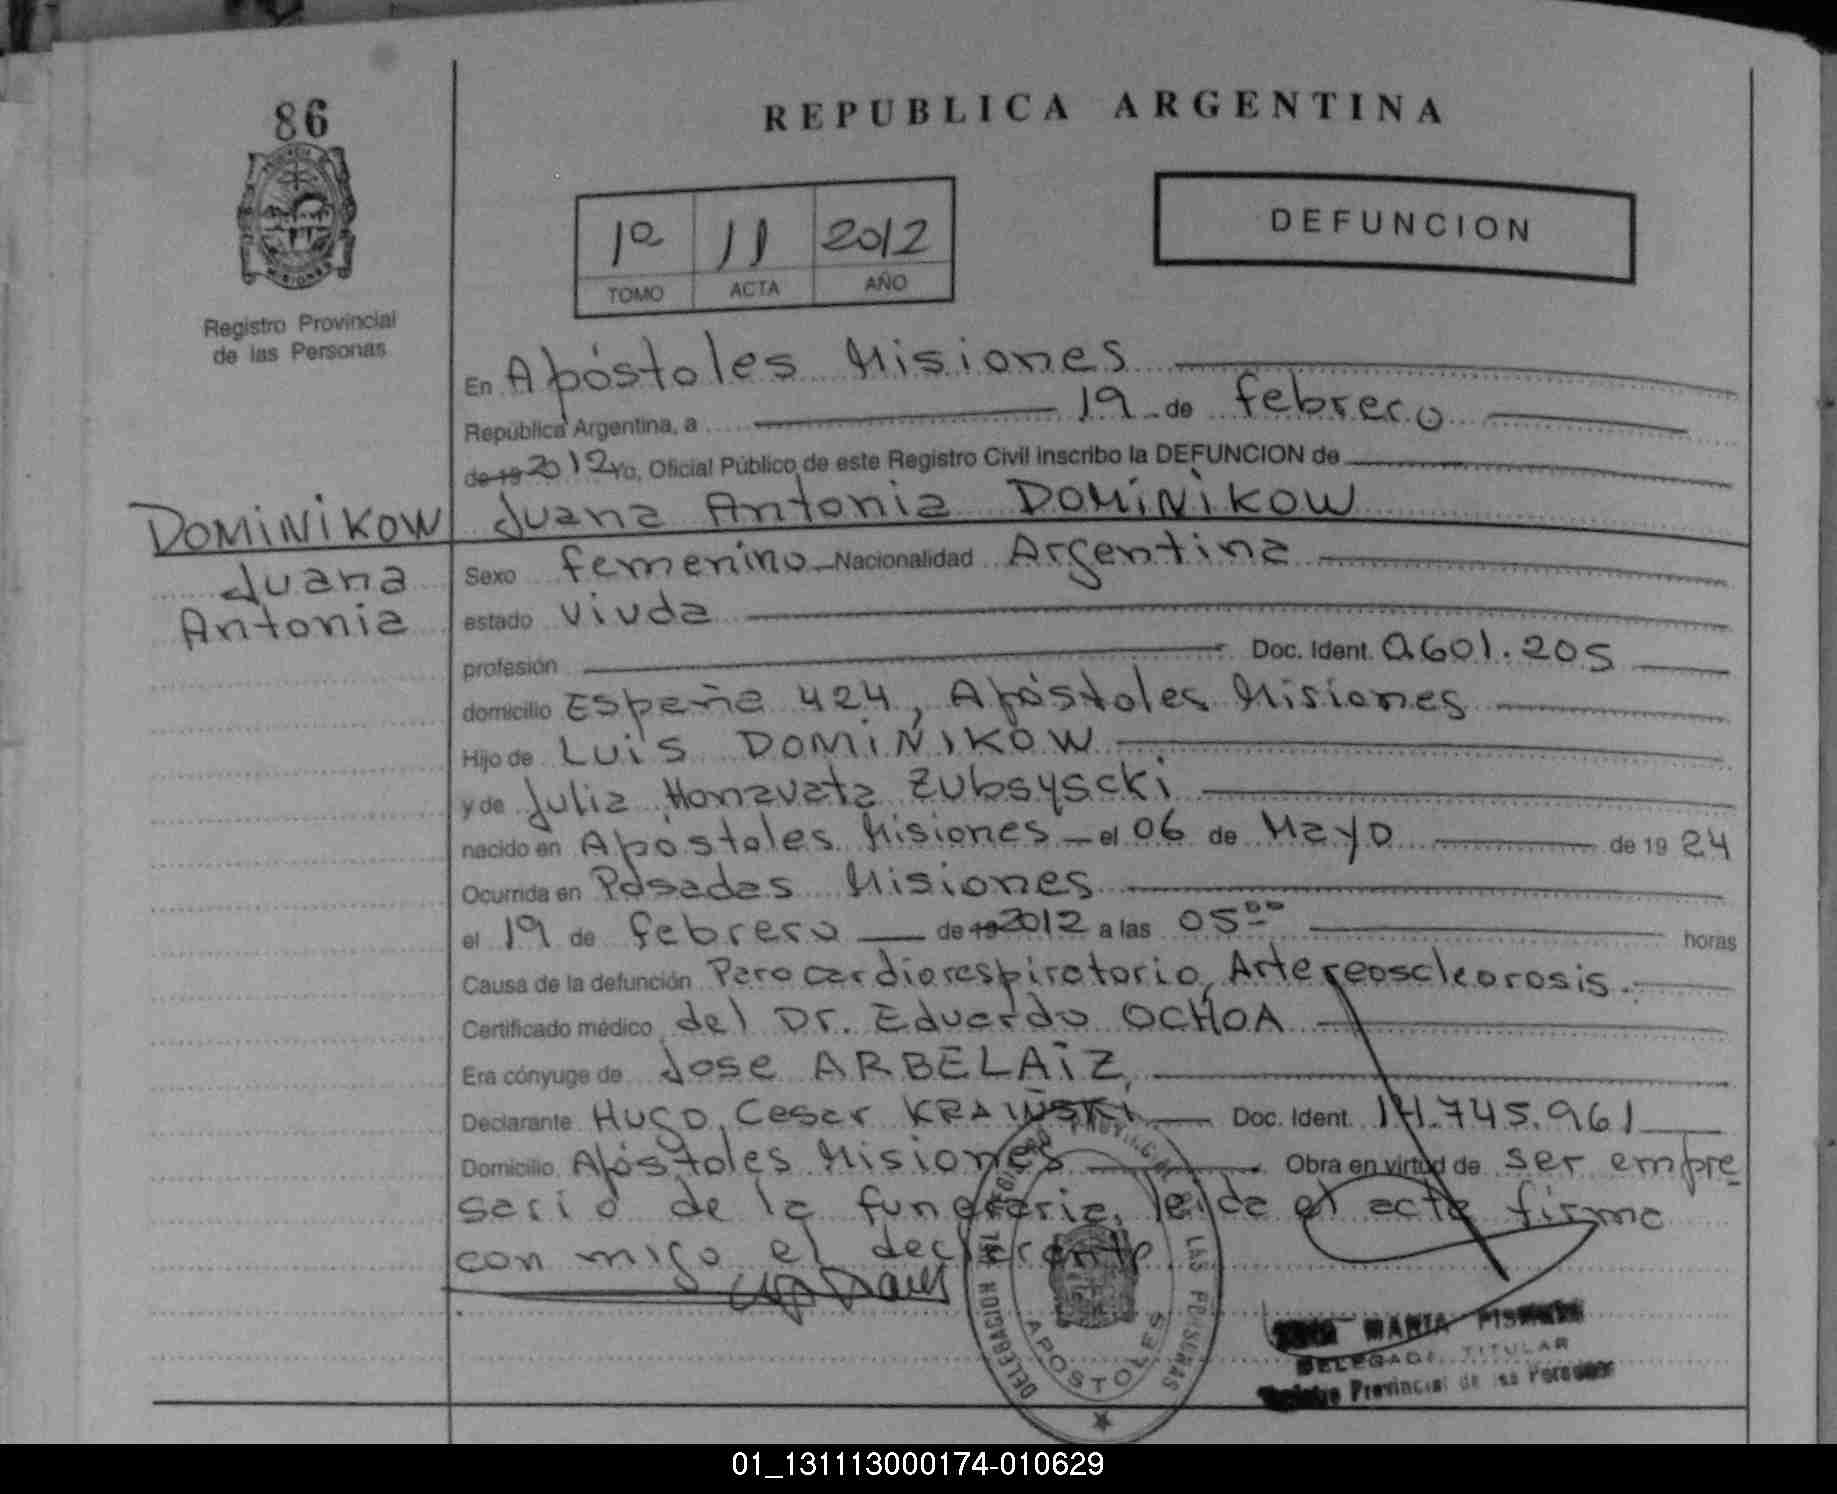 86
REPUBLICA ARGENTINA
DEFUNCION
1º 11 2012
TOMO ACTA AÑO
Registro Provincial
de las Personas
En Apóstoles Misiones
República Argentina, a 19 de febrero
de 19 2012 Yo, Oficial Público de este Registro Civil inscribo la DEFUNCION de
DOMINIKOW Juana Antonia DOMINIKOW
Juana
Antonia
Sexo femenino Nacionalidad Argentina
estado viuda
profesión Doc. Ident. 9.601.205
domicilio España 424, Apóstoles Misiones
Hijo de LUIS DOMINIKOW
y de Julia Honavata Zubsyscki
nacido en Apóstoles Misiones el 06 de Mayo de 19 24
Ocurrida en Posadas Misiones
el 19 de febrero de 19 2012 a las 05 00 horas
Causa de la defunción Parocardiorespiratorio, Artereoscleorosis.
Certificado médico del Dr. Eduardo OCHOA
Era cónyuge de Jose ARBELAIZ,
Declarante Hugo, Cesar KRAINSKI Doc. Ident. 14.745.961
Domicilio Apóstoles Misiones Obra en virtud de ser empre
sario de la funeraria, leida el acta firma
con migo el declarante
DELEGACION DEL REGISTRO PROVINCIAL DE LAS PERSONAS
APOSTOLES
MARIA
DELEGADA TITULAR
Registro Provincial de las Personas
01_131113000174-010629